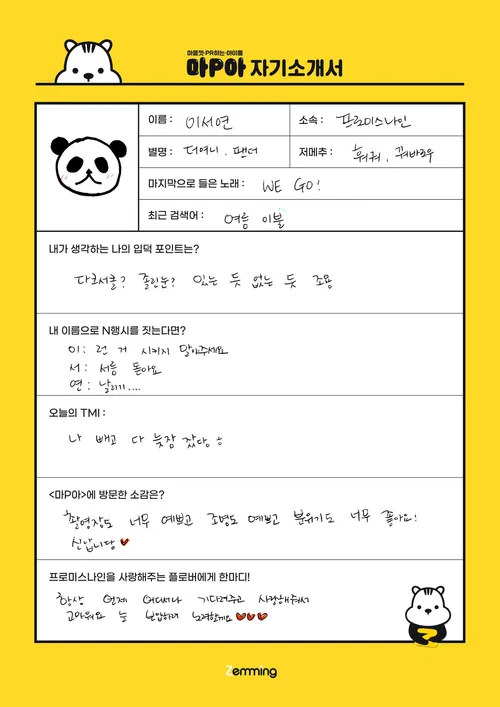 마음껏·PR하는·아이돌
마P아 자기소개서
이름 : 이서연
소속 : 프로미스나인
별명 : 더여니 . 팬더
저메추 : 훠궈 , 꿔바로우
마지막으로 들은 노래 : WE GO!
최근 검색어 : 여름 이불
내가 생각하는 나의 입덕 포인트는?
다크서클? 졸린눈? 있는 듯 없는 듯 조용
내 이름으로 N행시를 짓는다면?
이 : 런 거 시키지 말아주세요
서 : 서릉 돋아요
연 : 날리기....
오늘의 TMI :
나 빼고 다 늦잠 잤다.
<마P아>에 방문한 소감은?
촬영장도 너무 예쁘고 조명도 예쁘고 분위기도 너무 좋아요!
신납니당
프로미스나인을 사랑해주는 플로버에게 한마디!
항상 언제 어디서나 기다려주고 사랑해줘서
고마워요 늘 보답하려 노력할게요
Zemming